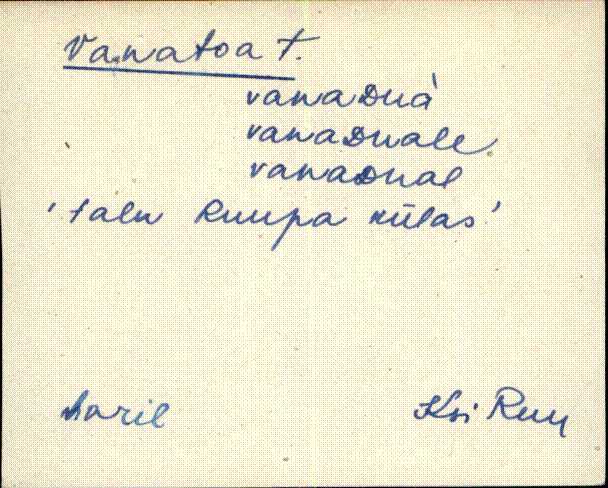 Vanatoa t.
vanaᴅuà
vanaᴅuale
vanaᴅual
'talu Ruupa külas'
Ksi Ruu